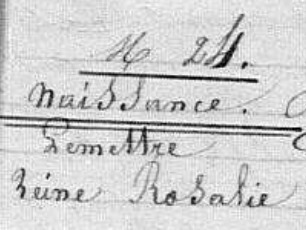 N 24.
Naissance.
Lemettre
Reine Rosalie